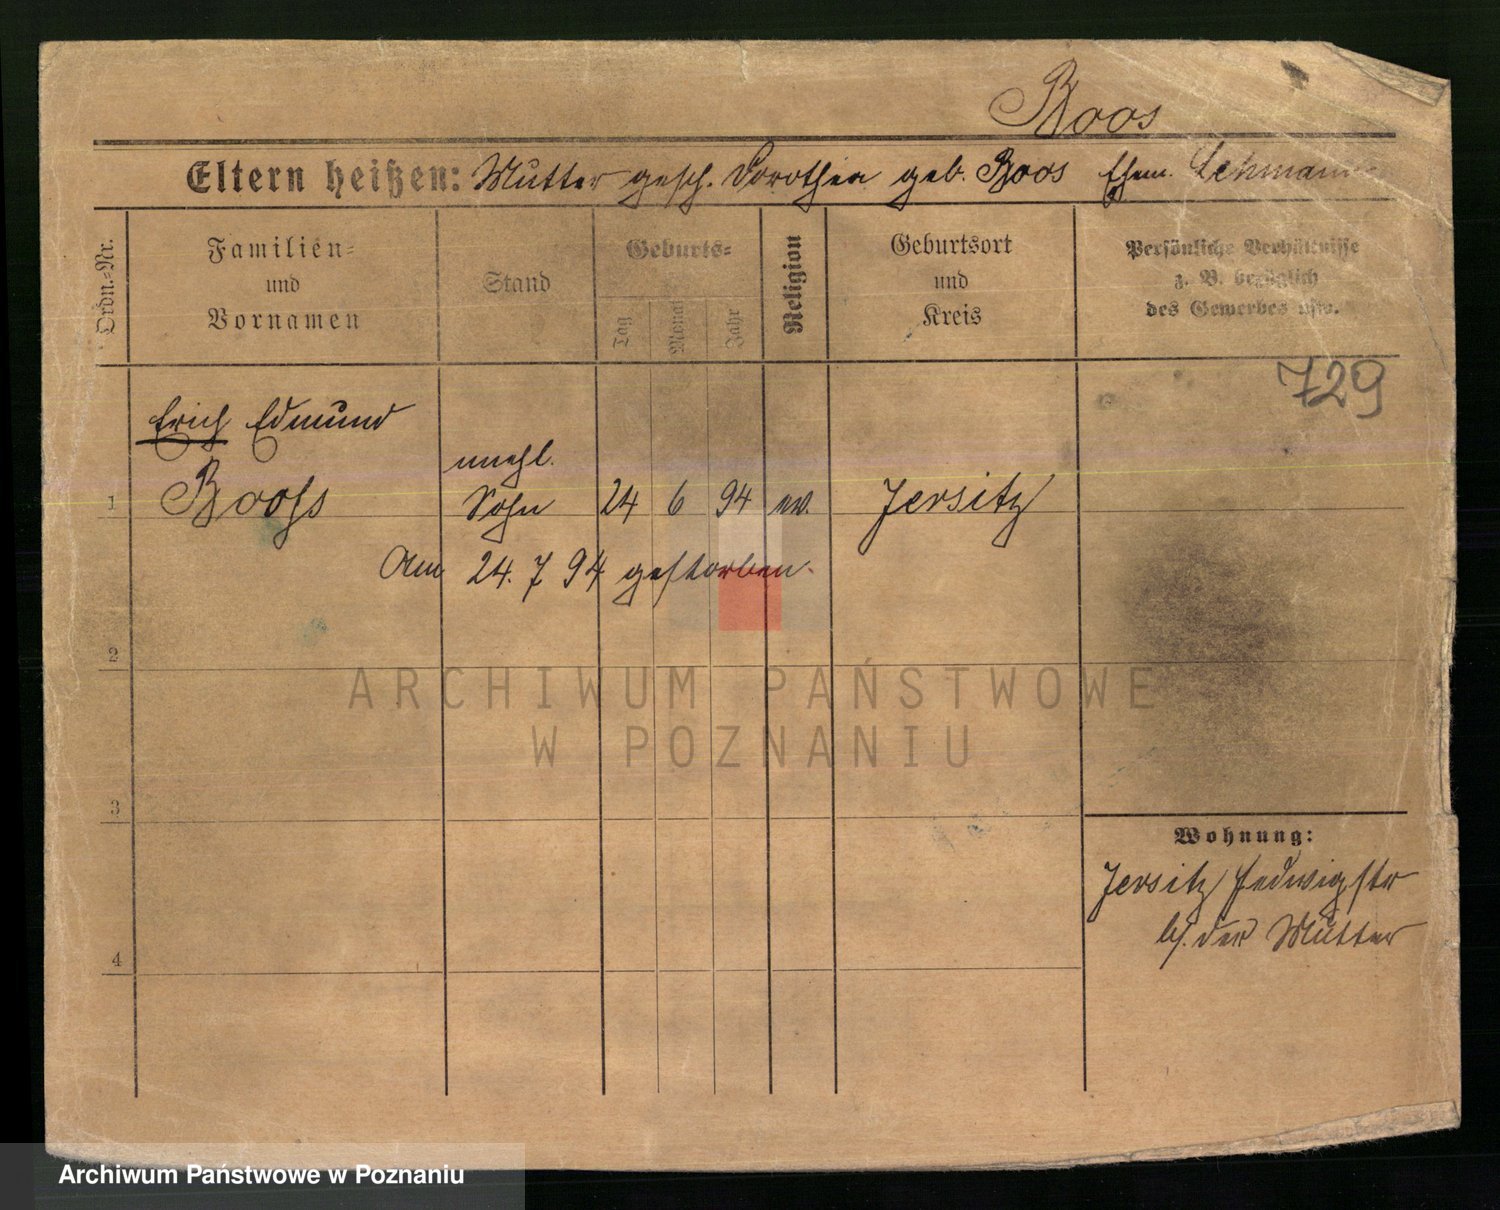 Boos
Eltern heißen: Mutter gesch. Dorothea geb. Boos Ehem. Lehmann
Ordn.-Nr.
Familien-
und
Vornamen
Stand
Geburts-
Tag
Monat
Jahr
Religion
Geburtsort
und
Kreis
Persönliche Verhältnisse
z. B. bezüglich
des Gewerbes usw.
729
Erich Edmund
unehl.
1 Boohs Sohn 24 6 94 ev. Jersitz
Am 24. 7 94 gestorben.
2
3
4
Wohnung:
Jersitz Hedwigstr
b. der Mutter
ARCHIWUM PAŃSTWOWE
W POZNANIU
Archiwum Państwowe w Poznaniu